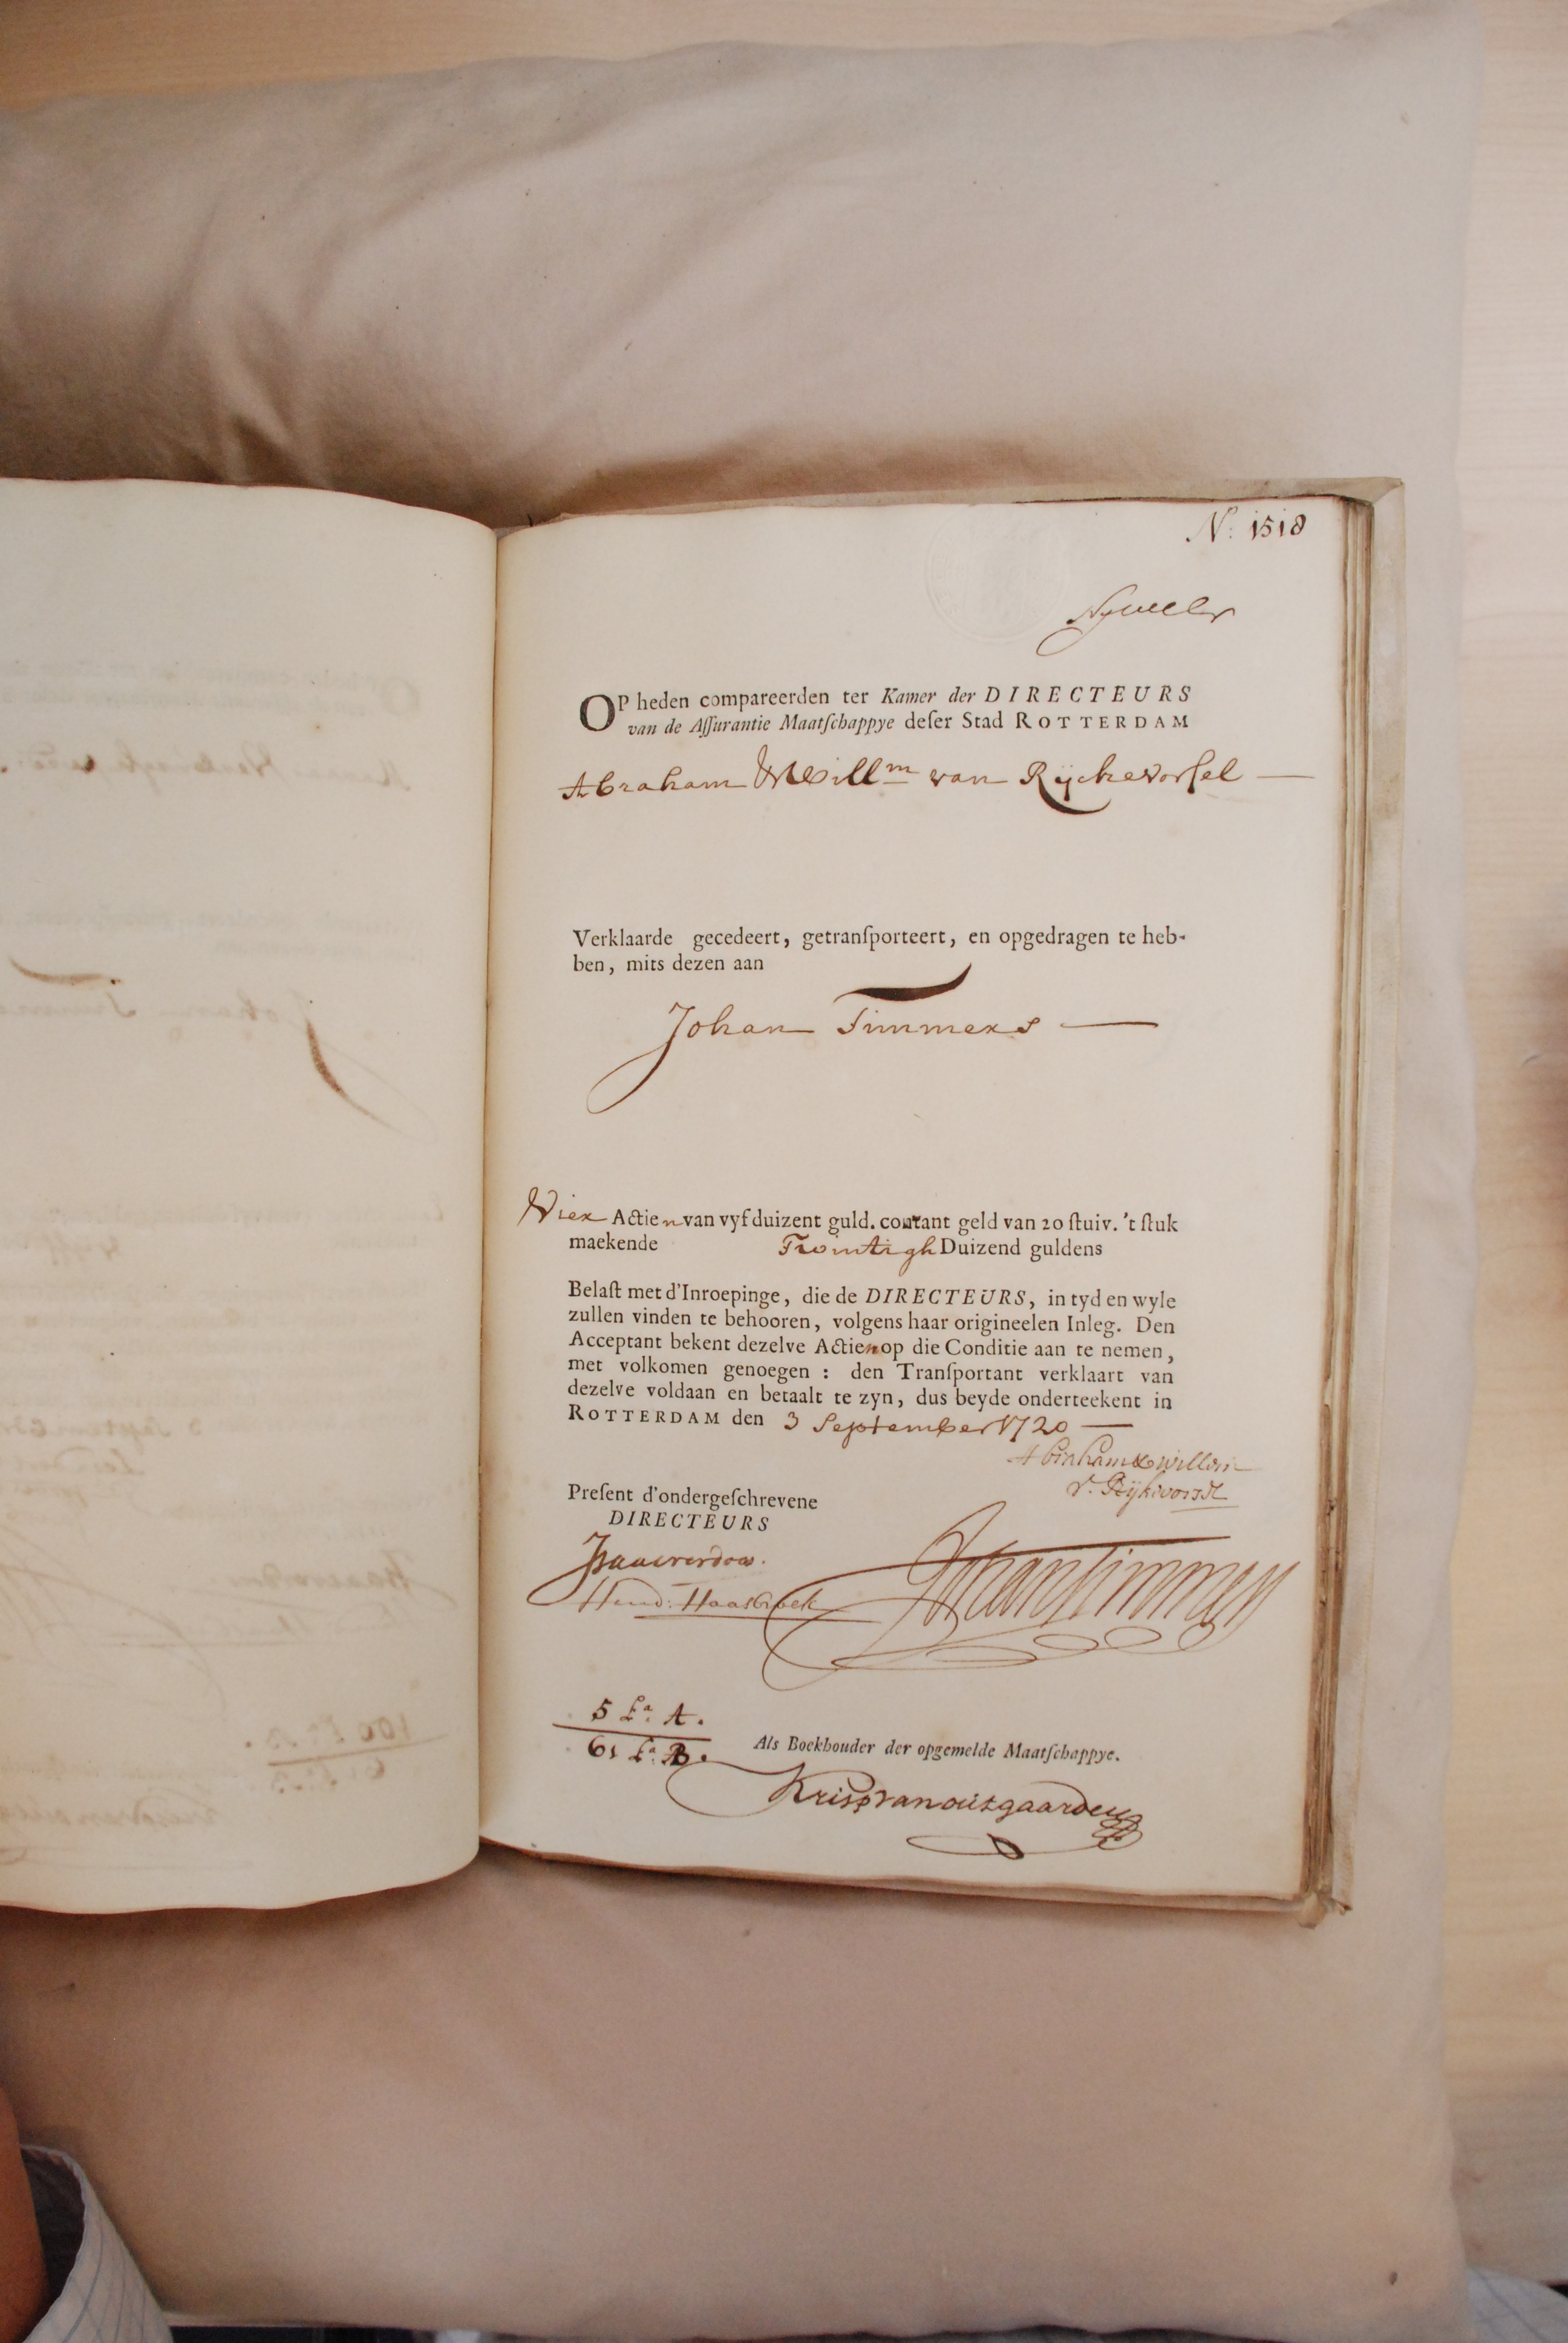 N: 1518
OP heden compareerden ter Kamer der DIRECTEURS
van de Aſſurantie Maatſchappye deſer Stad ROTTERDAM
Abraham Willm van Ryckevorſel
Verklaarde gecedeert, getranſporteert, en opgedragen te heb-
ben, mits dezen aan
Johan Timmers
Vier Actien van vyf duizent guld. courant geld van 20 ſtuiv. 't ſtuk
maekende Twintigh Duizend guldens
Belaſt met d'Inroepinge, die de DIRECTEURS, in tyd en wyle
zullen vinden te behooren, volgens haar origineelen Inleg. Den
Acceptant bekent dezelve Actien op die Conditie aan te nemen,
met volkomen genoegen : den Tranſportant verklaart van
dezelve voldaan en betaalt te zyn, dus beyde onderteekent in
ROTTERDAM den 3 September 1720
Abraham Willem
v. Rijkvorsel
Preſent d'ondergeſchrevene
DIRECTEURS
Hend: Haasbroek
Johan Timmers
5 La A.
61 La B.
Als Boekhouder der opgemelde Maatſchappye.